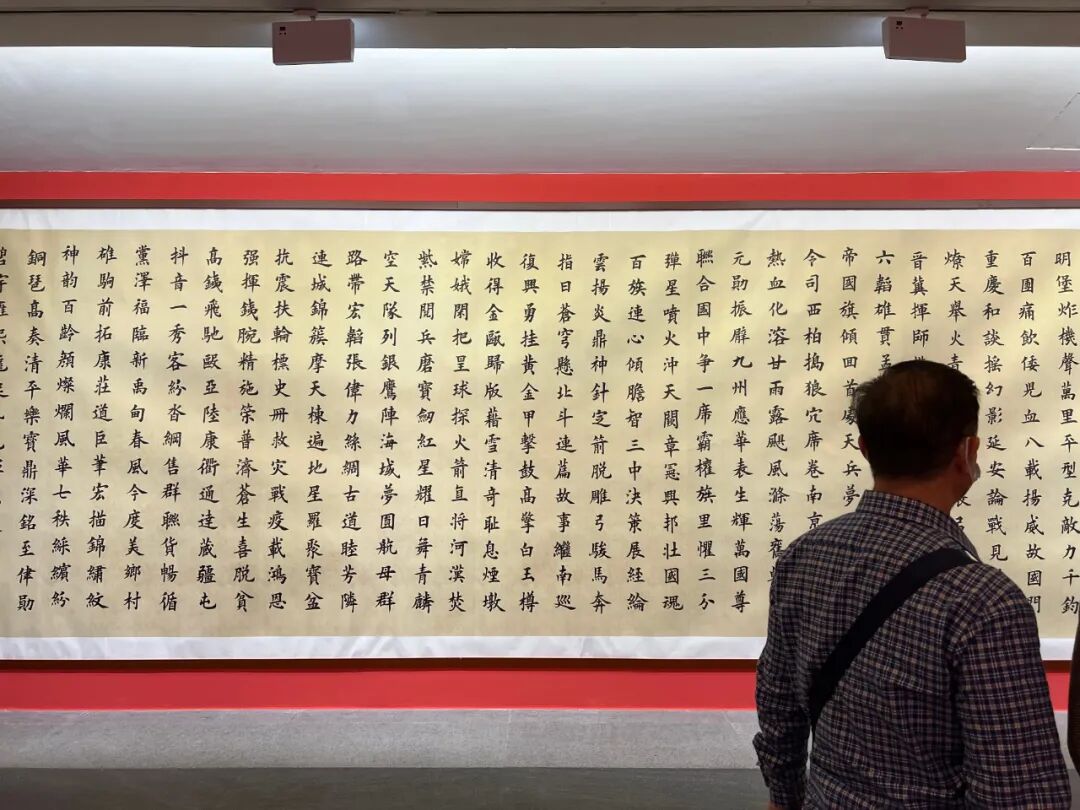 明堡炸機聲萬里平型克敵力千鈞
百團痛飲倭児血八載揚威故國門
重慶和談摇幻影延安論戰見
燎天舉火青
晋冀揮師
六韜雄貫
帝國旗傾回首處天兵夢
令司西柏搗狼穴席卷南京
熱血化溶甘雨露颶風滌蕩舊
元勛振臂九州應華表生輝萬國尊
聯合國中爭一席霸權族里懼三分
彈星噴火沖天闕章冕興邦壯國魂
百族連心傾膽智三中決策展經綸
雲揚炎鼎神針定箭脱雕弓駿馬奔
指日蒼穹懸北斗連篇故事繼南巡
復興勇挂黄金甲擊鼓高擎白玉樽
收得金甌歸版藉雪清奇耻息煙墩
嫦娥閑把星球探火箭直將河漢焚
紫禁閲兵磨寶劍紅星耀日舞青麟
空天隊列銀鷹陣海域夢圓航母群
路帶宏韜張偉力絲綢古道睦芳隣
連城錦簇摩天棟遍地星羅聚寶盆
抗震扶輪標史册救灾戰疫載鴻恩
强揮鐵腕精施策普濟蒼生喜脱貧
高鐵飛馳毆亞陸康衢通達藏疆屯
抖音一秀客紛沓網售群聯貨暢循
黨澤福臨新禹甸春風今度美鄉村
雄駒前拓康莊道巨筆宏描錦繡紋
神韵百齡顔燦爛風華七秩綵繽紛
銅琶高奏清平樂寶鼎深銘至偉勛